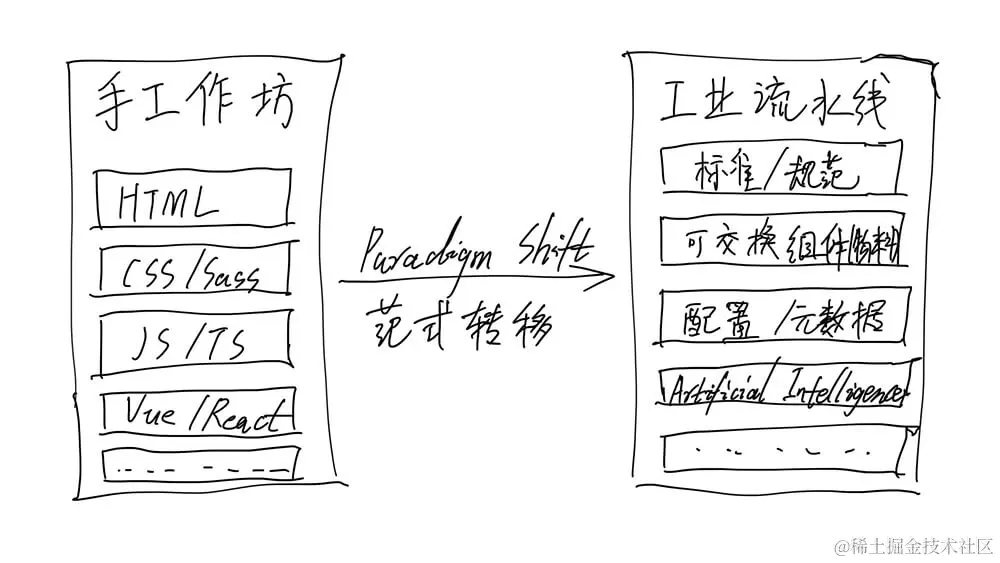 手工作坊
HTML
CSS/Sass
JS/TS
Vue/React
Paradigm Shift
范式转移
工业流水线
标准/规范
可交换组件/物料
配置/元数据
Artificial Intelligence
@稀土掘金技术社区